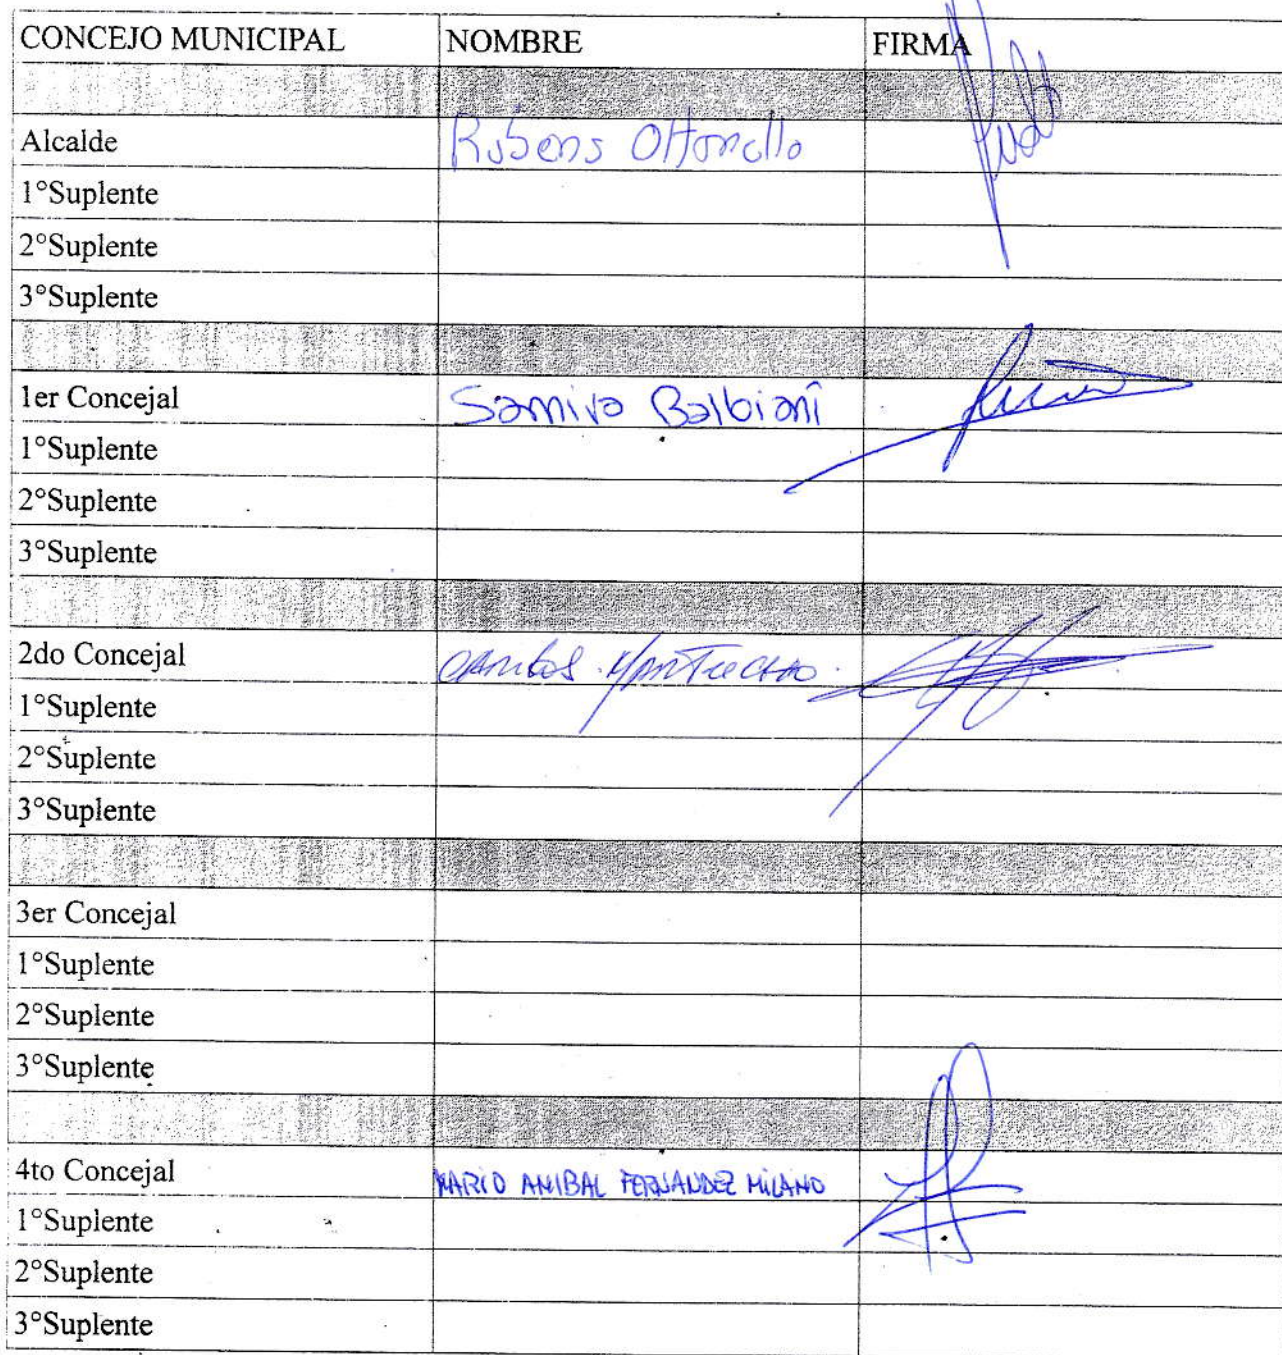 CONCEJO MUNICIPAL NOMBRE FIRMA
Alcalde Rubens Ottonello
1°Suplente
2°Suplente
3°Suplente
1er Concejal Samira Balbiani
1°Suplente
2°Suplente
3°Suplente
2do Concejal
1°Suplente
2°Suplente
3°Suplente
3er Concejal
1°Suplente
2°Suplente
3°Suplente
4to Concejal MARIO ANIBAL FERNANDEZ MILANO
1°Suplente
2°Suplente
3°Suplente